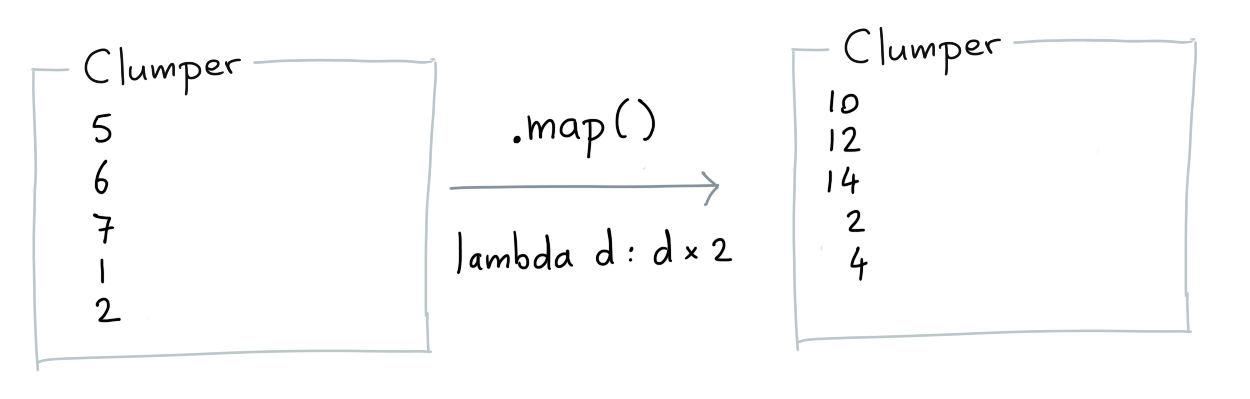 Clumper
5
6
7
1
2
.map()
lambda d: d × 2
Clumper
10
12
14
2
4